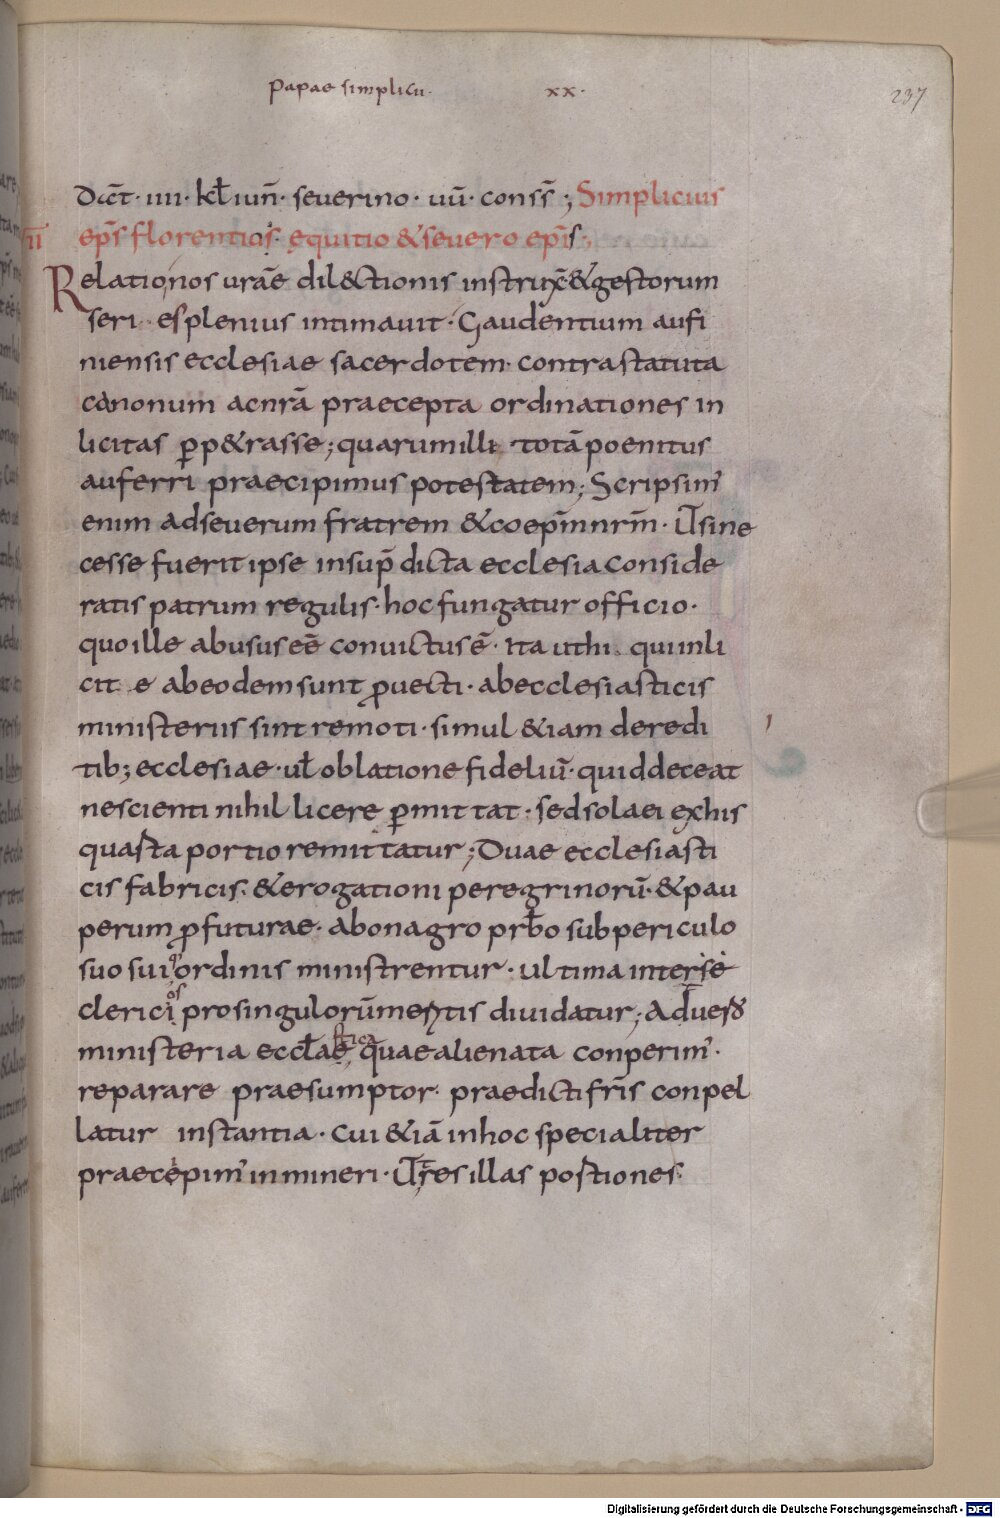 Papae simplicii· xx·
237
Dat̄· iiii· kł iun̄· severino· uū· conss̄; Simplicius
ii ep̄s florentios· equitio & severo epīs;
Relationos urāe dil&ctionis instrux̄ & gestorum
seri· es plenius intimavit· Gaudentium aufi
niensis ecclesiae sacerdotem· contra statuta
canonum acnrā praecepta ordinationes in
licitas p̄p&rasse; quarum illi totā poenitus
auferri praecipimus potestatem; Scripsim'
enim adseverum fratrem & coep̄m nrm̄· Ut̄ sine
cesse fuerit ipse insup̄ dicta ecclesia conside
ratis patrum regulis· hoc fungatur officio·
quo ille abusus eē convictus ē· Ita ut hi qui inli
cit e ab eodem sunt p̄uecti· ab ecclesiasticis
ministeriis sint remoti· simul & iam deredi
tib; ecclesiae· ul̄ oblatione fideliū· quid deceat
nescienti nihil licere p̄mittat· sed sola ei ex his
quasta portio remittatur; Duae ecclesiasti
cis fabricis· & erogationi peregrinorū· & pau
perum p̄futurae· ab onagro prb̄o sub periculo
suo sui ordinis ministrentur· ultima inter se
clerici os pro singulorūm mentis dividatur; Ad ues̄
ministeria eccl̄ae stica quae alienata conperim'·
reparare praesumptor· praedicti fr̄is conpel
latur instantia· Cui & iā in hoc specialiter
praecepim' inmineri· Ut̄ res illas postiones·
Digitalisierung gefördert durch die Deutsche Forschungsgemeinschaft - DFG